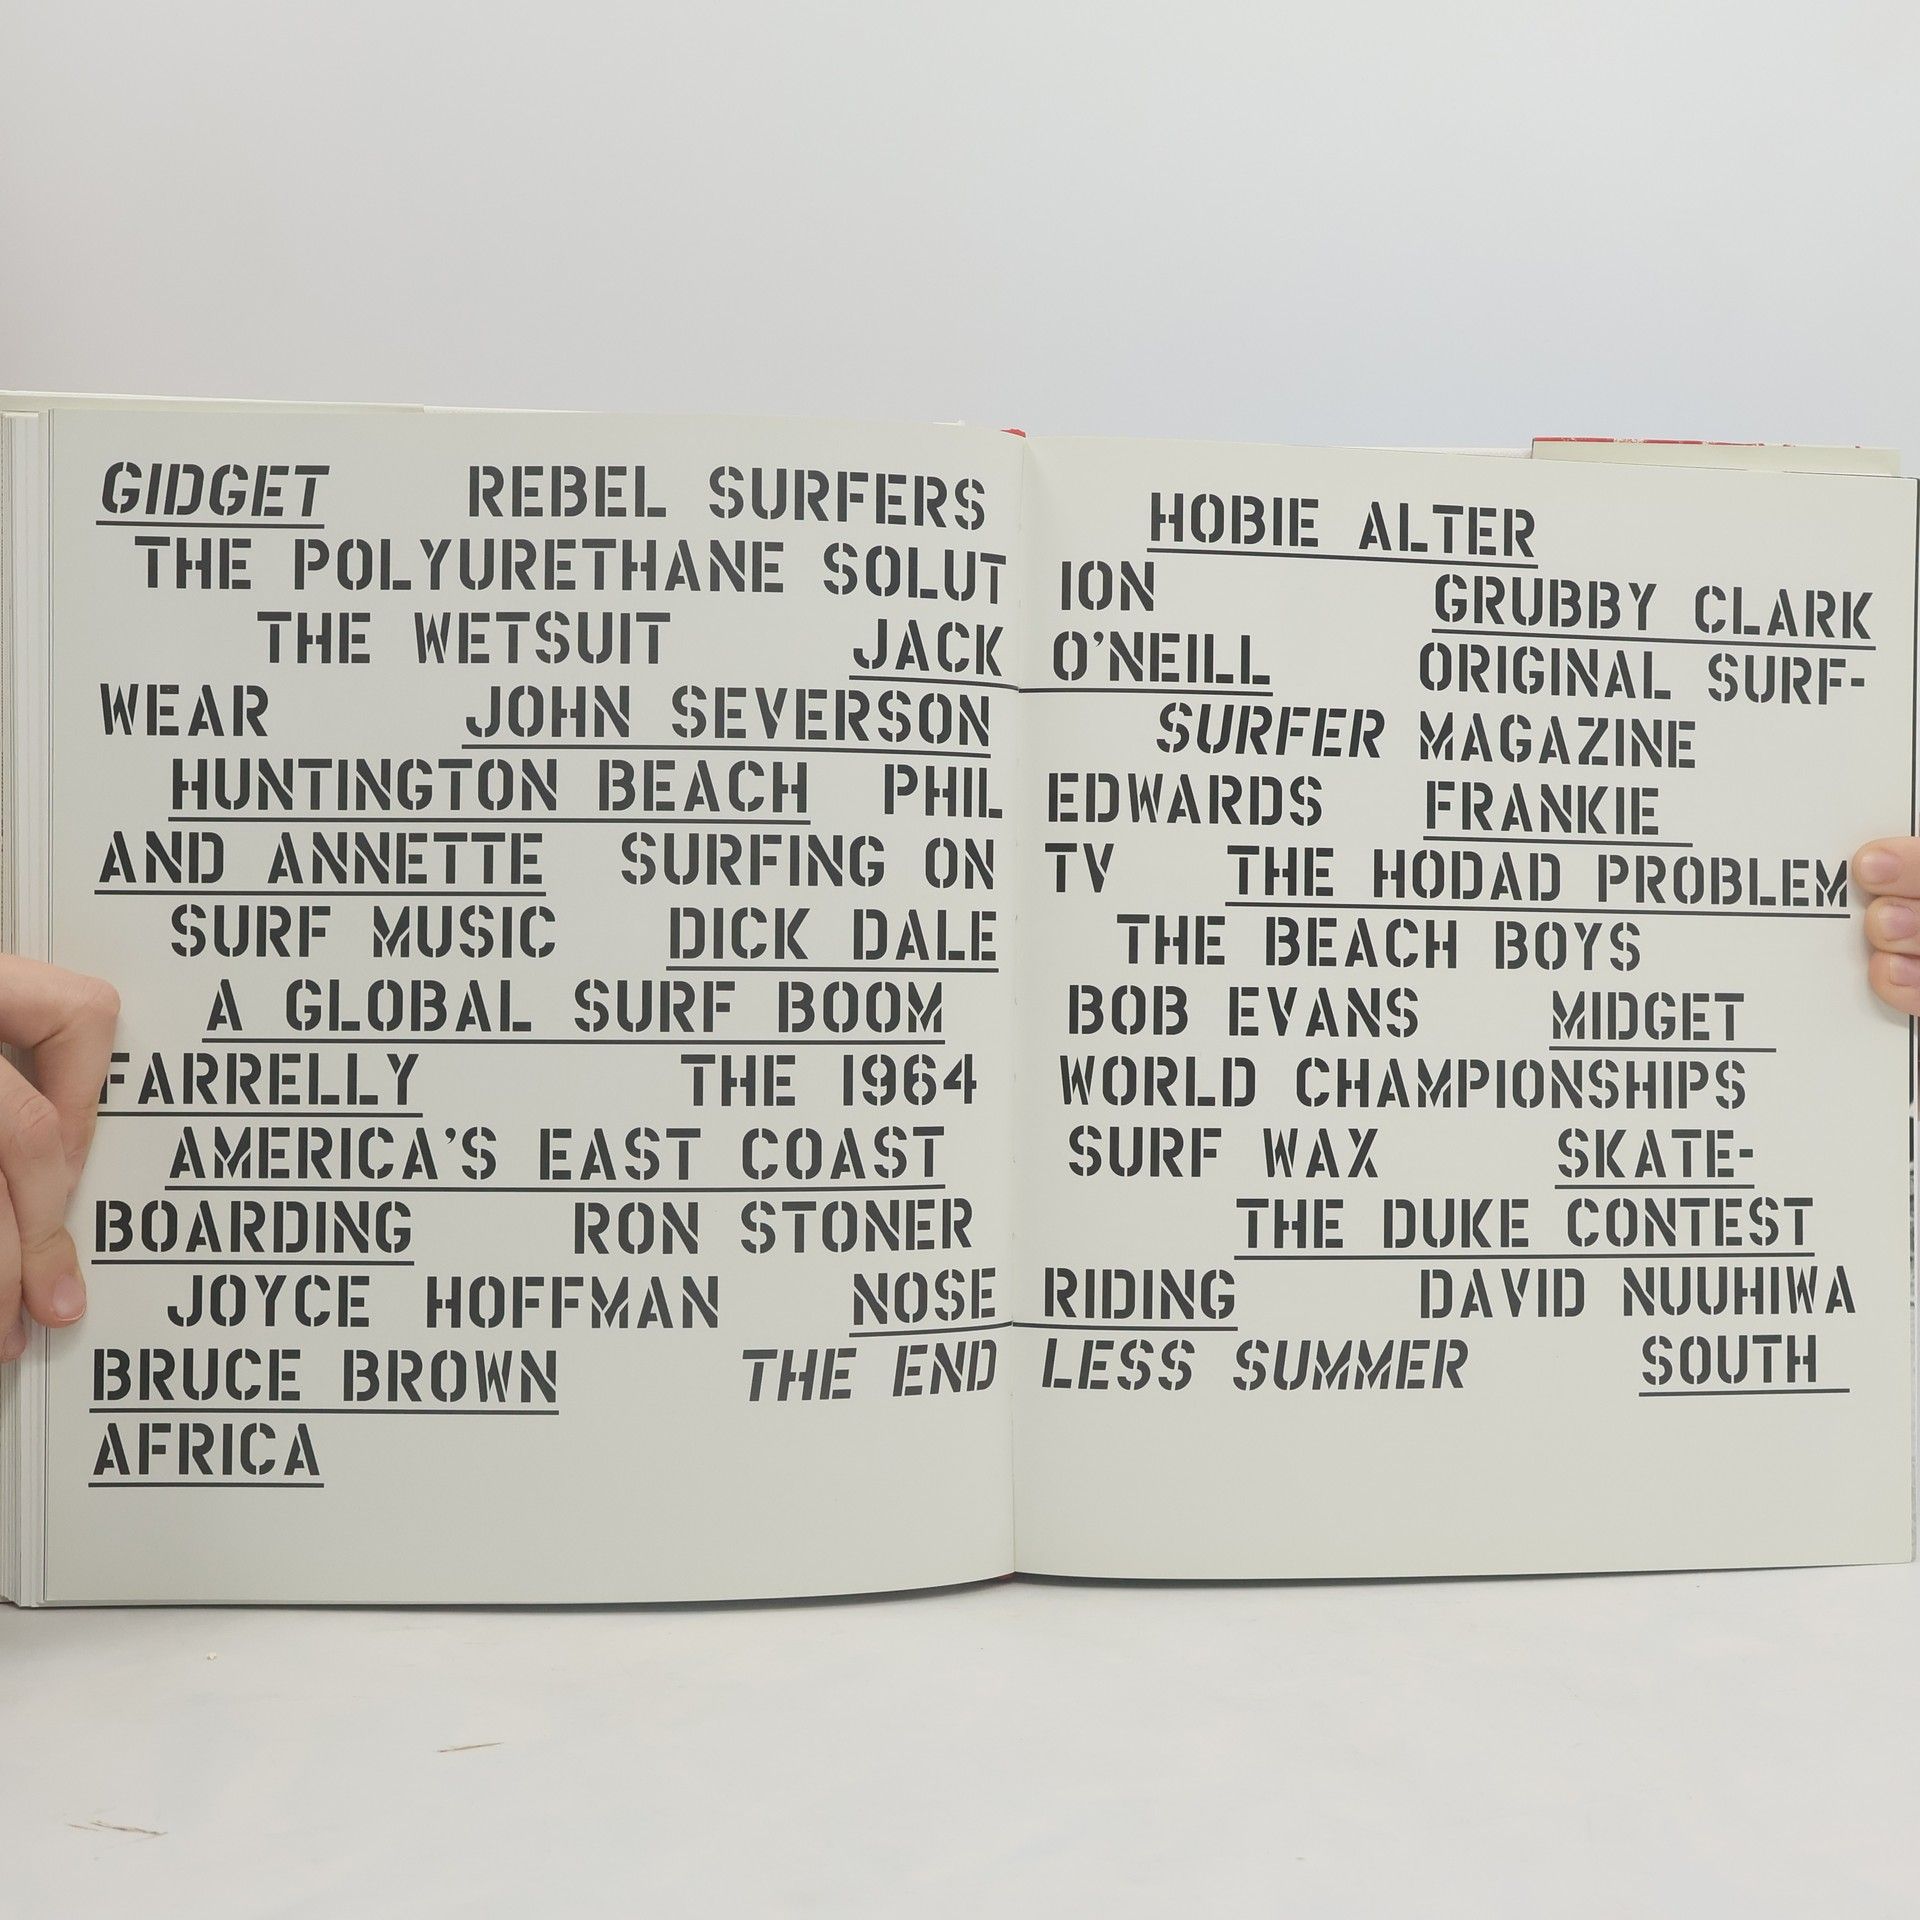 GIDGET REBEL SURFERS HOBIE ALTER
THE POLYURETHANE SOLUTION GRUBBY CLARK
THE WETSUIT JACK O'NEILL ORIGINAL SURF-
WEAR JOHN SEVERSON SURFER MAGAZINE
HUNTINGTON BEACH PHIL EDWARDS FRANKIE
AND ANNETTE SURFING ON TV THE HODAD PROBLEM
SURF MUSIC DICK DALE THE BEACH BOYS
A GLOBAL SURF BOOM BOB EVANS MIDGET
FARRELLY THE 1964 WORLD CHAMPIONSHIPS
AMERICA'S EAST COAST SURF WAX SKATE-
BOARDING RON STONER THE DUKE CONTEST
JOYCE HOFFMAN NOSE RIDING DAVID NUUHIWA
BRUCE BROWN THE ENDLESS SUMMER SOUTH
AFRICA